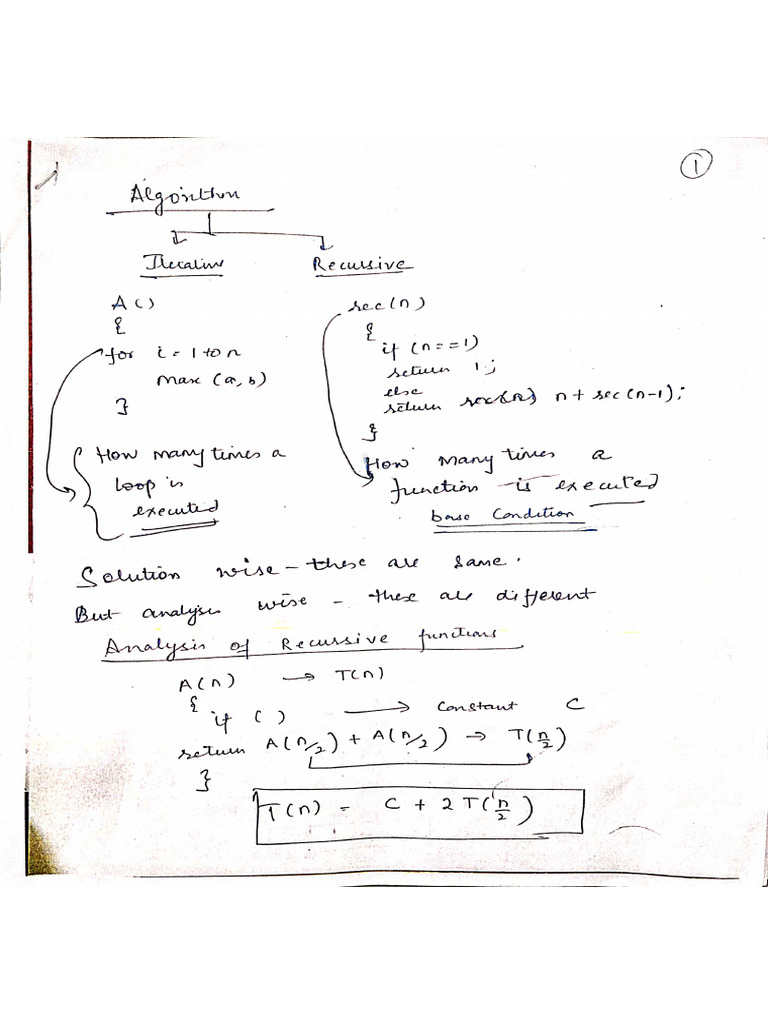 1
Algorithm
Iterative Recursive
A()
{
for i = 1 to n
max (a, b)
}
How many times a
loop is
executed
rec(n)
{
if (n==1)
return 1;
else
return n + rec(n-1);
}
How many times a
function is executed
base Condition
Solution wise - these are same.
But analysis wise - these are different
Analysis of Recursive functions
A(n) → T(n)
{
if ( ) → constant C
return A(n/2) + A(n/2) → T(n/2)
}
T(n) = C + 2T(n/2)